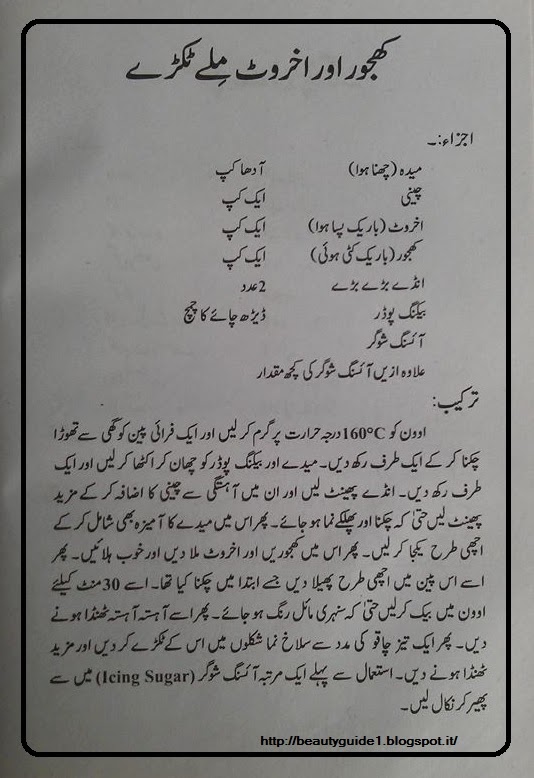 کھجور اور اخروٹ مِلے ٹکڑے
اجزاء:۔
میدہ (چھنا ہوا) آدھا کپ
چینی ایک کپ
اخروٹ (باریک پسا ہوا) ایک کپ
کھجور (باریک کٹی ہوئی) ایک کپ
انڈے بڑے بڑے 2 عدد
بیکنگ پوڈر ڈیڑھ چائے کا چمچ
آئسنگ شوگر
علاوہ ازیں آئسنگ شوگر کی کچھ مقدار
ترکیب:
اوون کو 160°C درجہ حرارت پر گرم کر لیں اور ایک فرائی پین کو گھی سے تھوڑا
چکنا کر کے ایک طرف رکھ دیں۔ میدے اور بیکنگ پوڈر کو چھان کر اکٹھا کر لیں اور ایک
طرف رکھ دیں۔ انڈے پھینٹ لیں اور ان میں آہستگی سے چینی کا اضافہ کر کے مزید
پھینٹ لیں حتیٰ کہ چکنا اور پھلکے نما ہو جائے۔ پھر اس میں میدے کا آمیزہ بھی شامل کر کے
اچھی طرح یکجا کر لیں۔ پھر اس میں کھجوریں اور اخروٹ ملا دیں اور خوب ہلائیں۔ پھر
اسے اس پین میں اچھی طرح پھیلا دیں جسے ابتدا میں چکنا کیا تھا۔ اسے 30 منٹ کیلئے
اوون میں بیک کر لیں حتیٰ کہ سنہری مائل رنگ ہو جائے۔ پھر اسے آہستہ آہستہ ٹھنڈا ہونے
دیں۔ پھر ایک تیز چاقو کی مدد سے سلاخ نما شکلوں میں اس کے ٹکڑے کر دیں اور مزید
ٹھنڈا ہونے دیں۔ استعمال سے پہلے ایک مرتبہ آئسنگ شوگر (Icing Sugar) میں سے
پھیر کر نکال لیں۔
http://beautyguide1.blogspot.it/